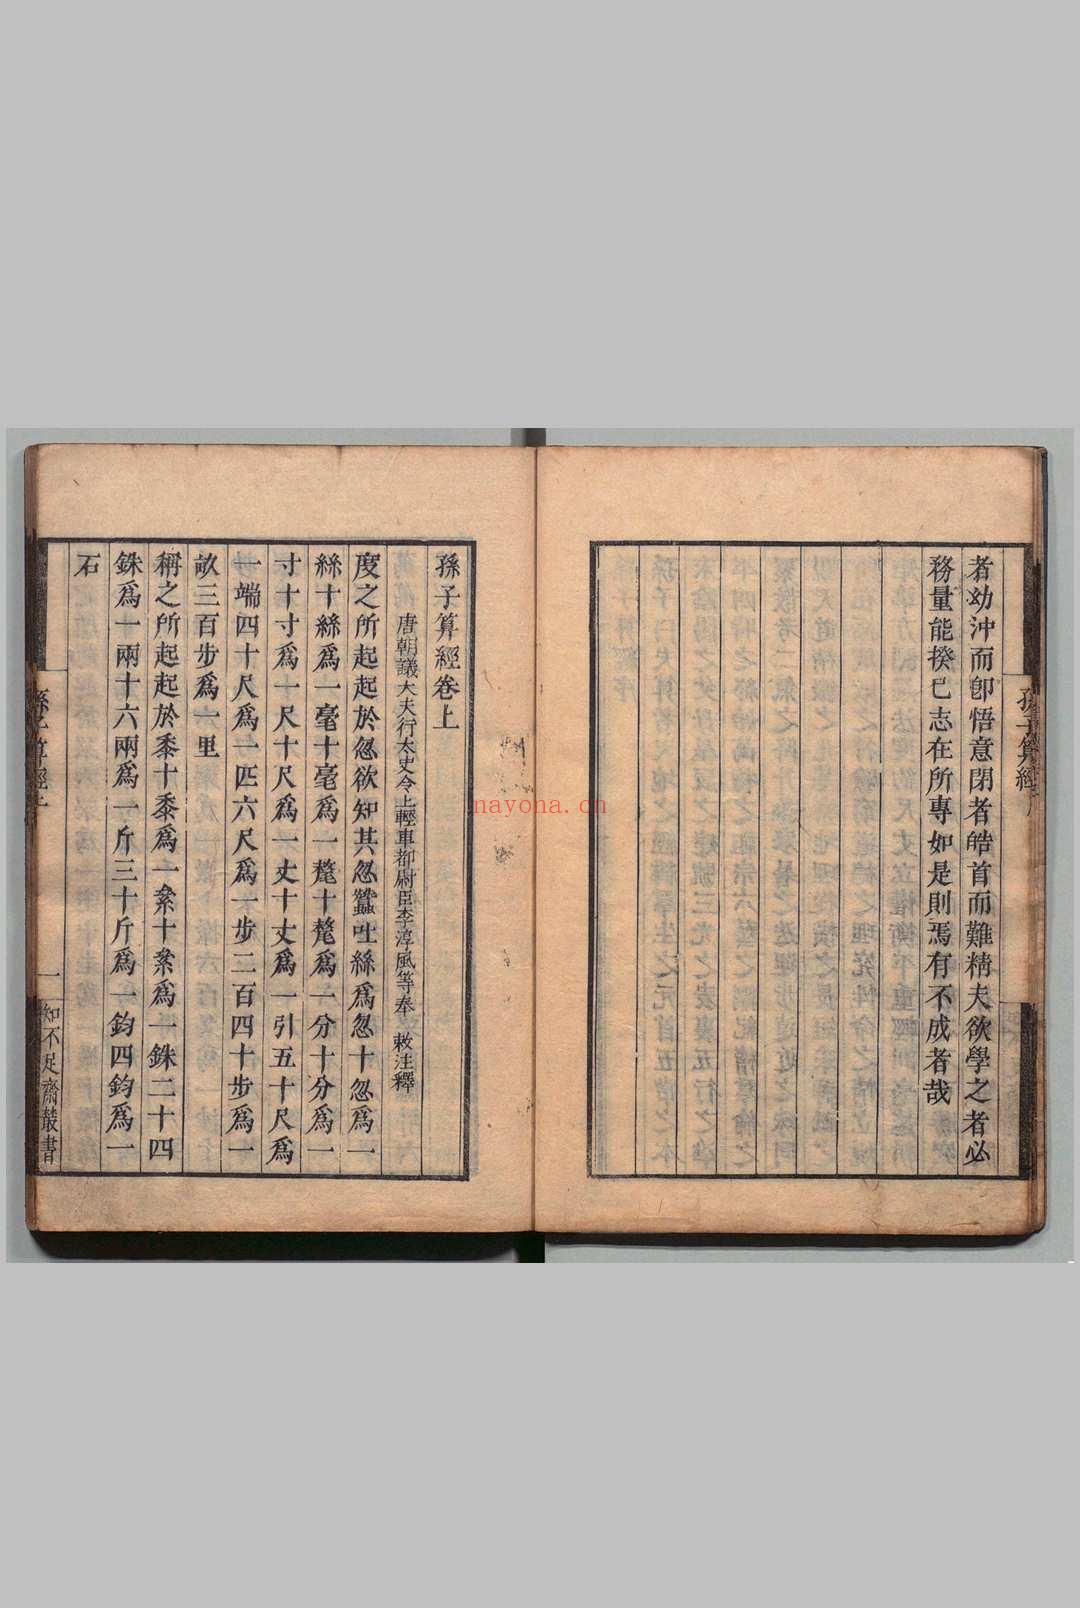 者幼沖而卽悟意閉者皓首而難精夫欲學之者必
務量能揆己志在所專如是則焉有不成者哉
孫子算經
孫子算經卷上
唐朝議大夫行太史令上輕車都尉臣李淳風等奉 敕注釋
度之所起起於忽欲知其忽蠶吐絲爲忽十忽爲一
絲十絲爲一毫十毫爲一氂十氂爲一分十分爲一
寸十寸爲一尺十尺爲一丈十丈爲一引五十尺爲
一端四十尺爲一匹六尺爲一步二百四十步爲一
畝三百步爲一里
稱之所起起於黍十黍爲一絫十絫爲一銖二十四
銖爲一兩十六兩爲一斤三十斤爲一鈞四鈞爲一
石
孫子算經上
一
知不足齋叢書
nayona.cn